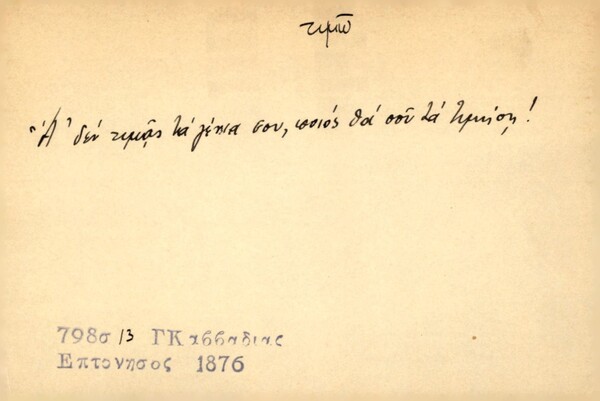 τιμῶ
"Ἀ" δέν τιμᾷς τά γένια σου, ποιός θά σοῦ τά τιμήσῃ!
798σ 13 ΓΚαββαδιας
Επτονησος 1876